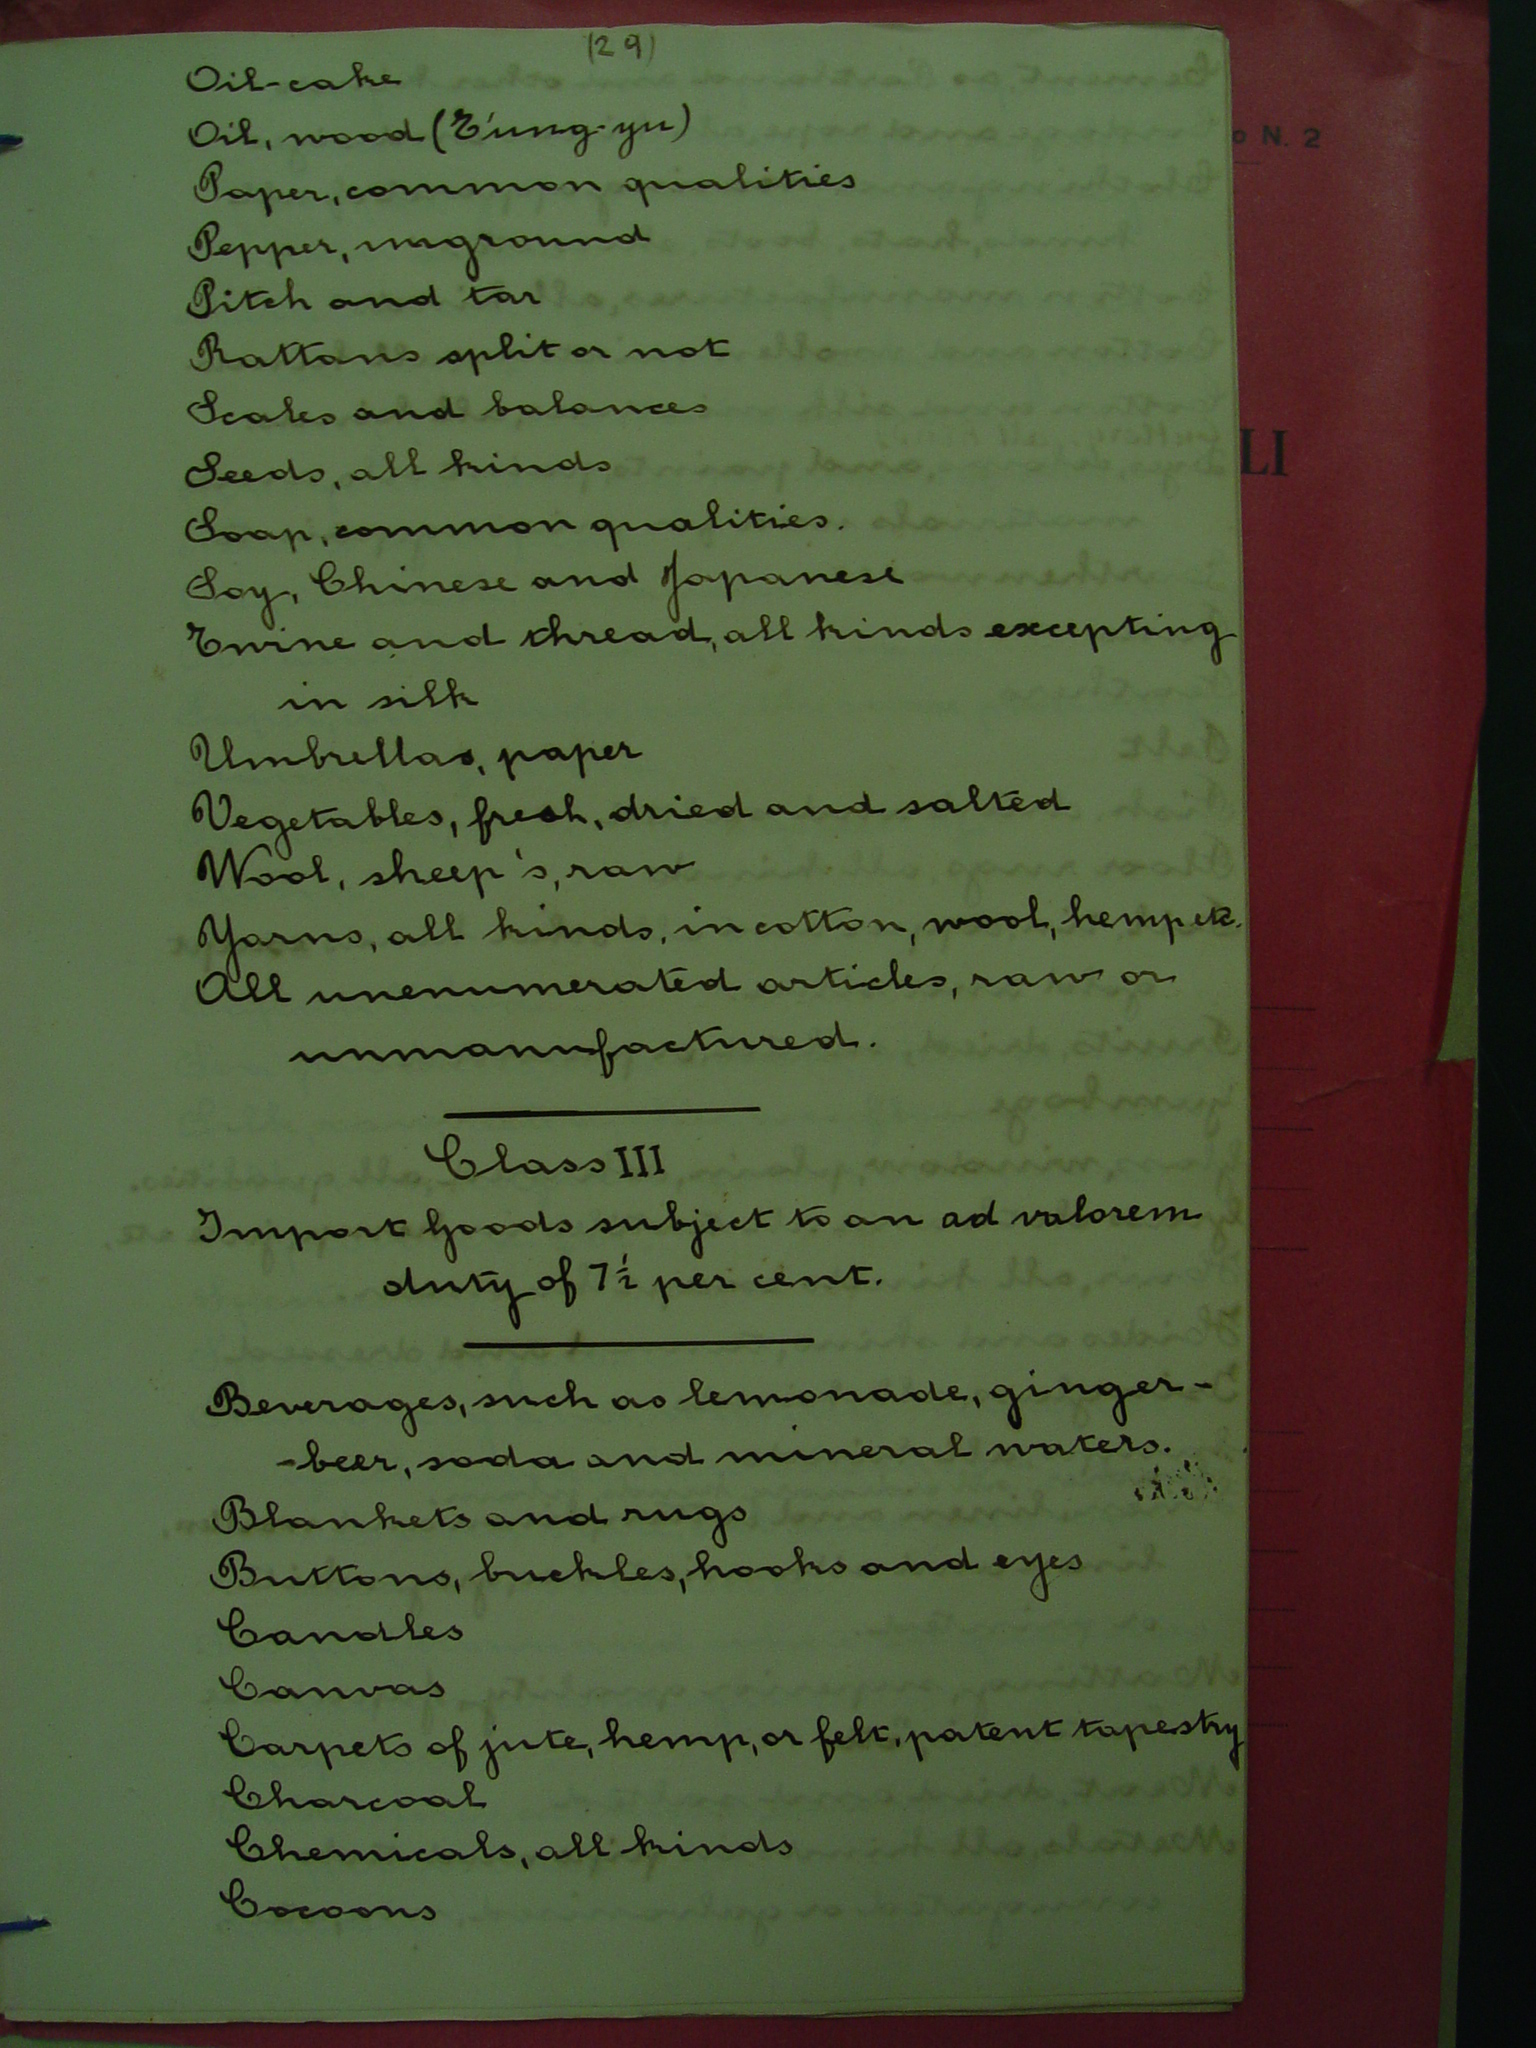 (29)
Oil-cake
Oil, wood (T'ung-yu)
Paper, common qualities
Pepper, unground
Pitch and tar
Rattans split or not
Scales and balances
Seeds, all kinds
Soap, common qualities.
Soy, Chinese and Japanese
Twine and thread, all kinds excepting
in silk
Umbrellas, paper
Vegetables, fresh, dried and salted
Wool, sheep's, raw
Yarns, all kinds, in cotton, wool, hemp etc.
All unenumerated articles, raw or
unmanufactured.
Class III
Import Goods subject to an ad valorem
duty of 7½ per cent.
Beverages, such as lemonade, ginger-
-beer, soda and mineral waters.
Blankets and rugs
Buttons, buckles, hooks and eyes
Candles
Canvas
Carpets of jute, hemp, or felt, patent tapestry
Charcoal
Chemicals, all kinds
Cocoons
o N. 2
LI